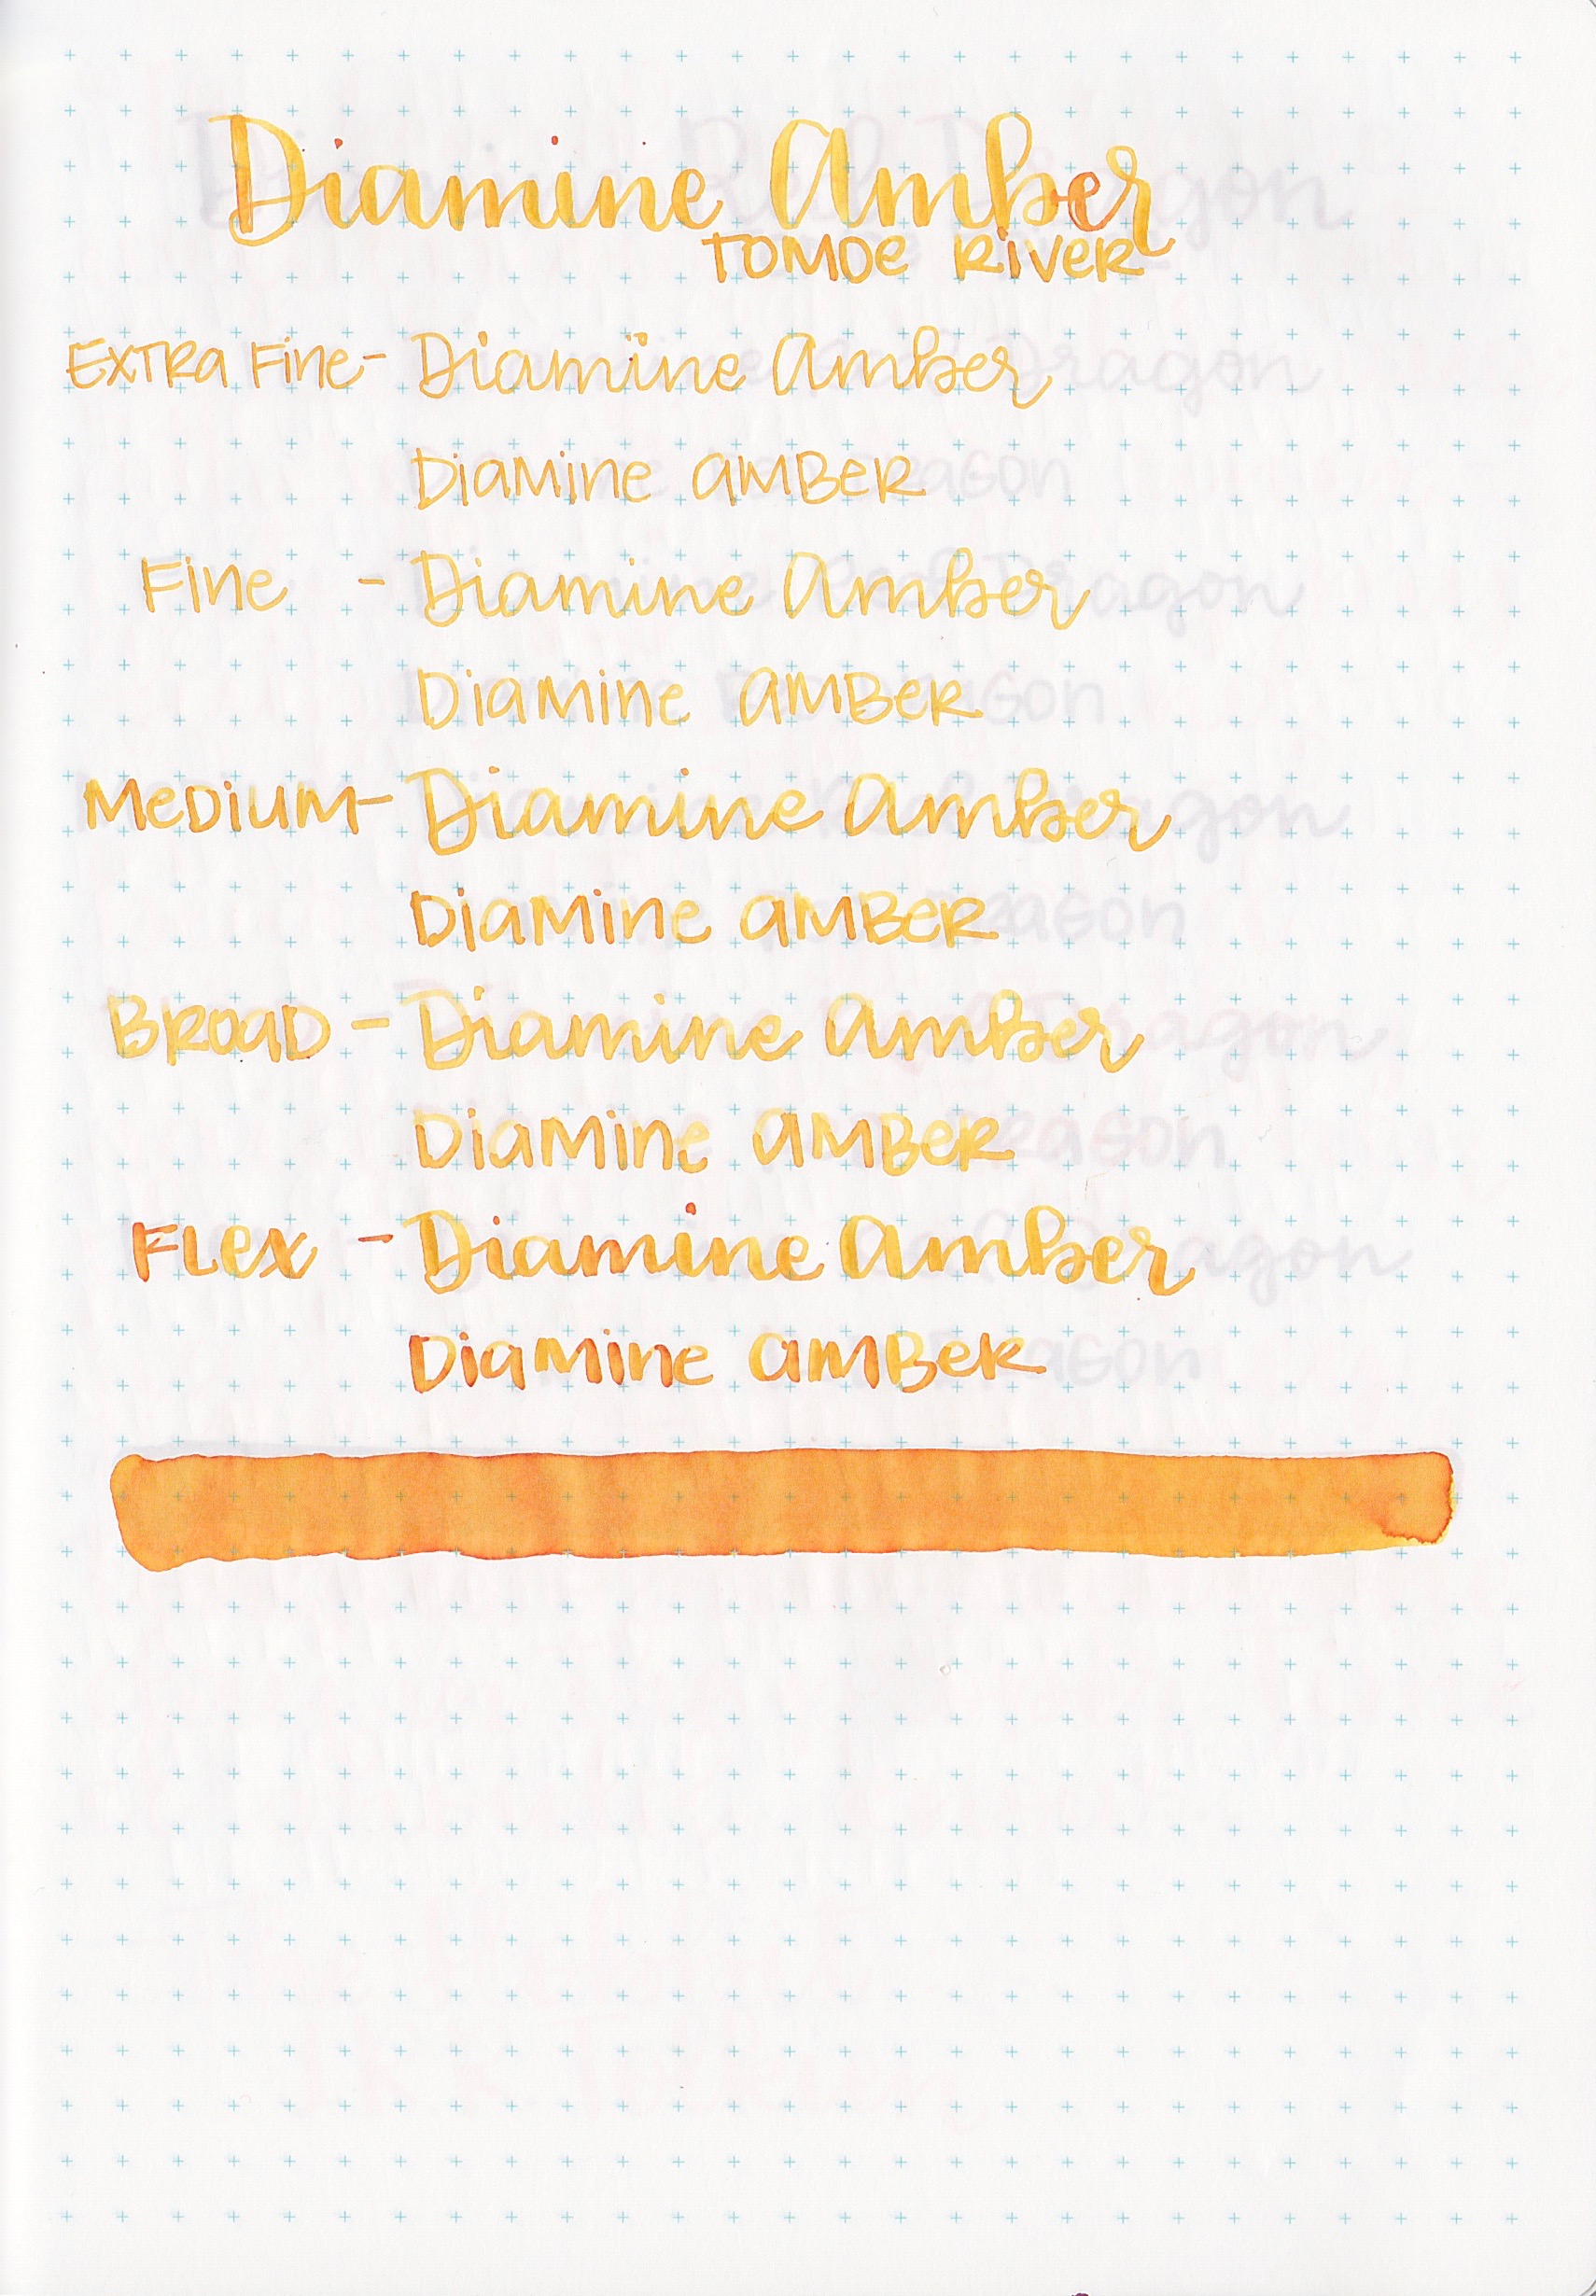 Diamine Amber
TOMOE RiVER
EXTRa Fine- Diamine Amber
DiaMine aMBeR
Fine - Diamine Amber
DiaMine aMBeR
MeDiuM- Diamine Amber
DiaMine aMBeR
BRoaD - Diamine Amber
DiaMine aMBeR
FLex - Diamine Amber
DiaMine aMBeR